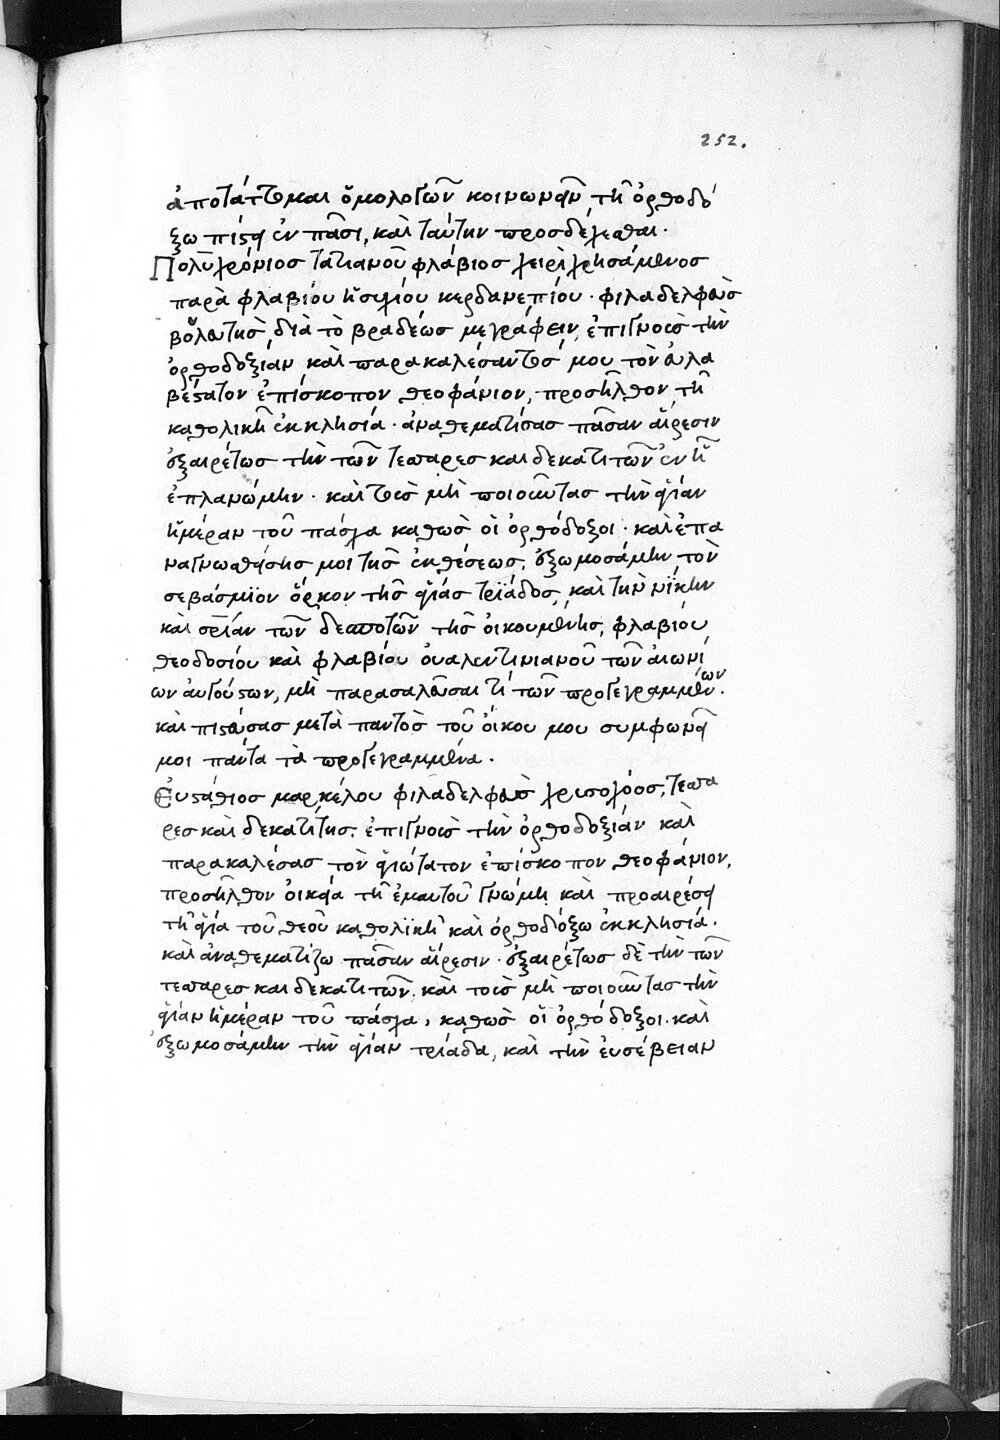 252.
ἀποτάττομαι ὁμολογῶν κοινωνεῖν τῇ ὀρθοδό
ξω πίστει ἐν πᾶσι, καὶ ταύτην προσδέχεσθαι.
Πολυχρόνιος τατιανοῦ φλάβιος χειρὶ χρησάμενος
παρὰ φλαβίου ἡσυχίου κερδανεπίου. φιλαδελφεὺς
βουλευτὴς, διὰ τὸ βραδέως με γράφειν, ἐπιγνοὺς τὴν
ὀρθοδοξίαν, καὶ παρακαλέσαντός μου τὸν εὐλα
βέστατον ἐπίσκοπον θεοφάνιον, προσῆλθον τῇ
καθολικῇ ἐκκλησία. ἀναθεματίσας πᾶσαν αἵρεσιν
ἐξαιρέτως τὴν τῶν τεσσαρες και δεκατιτῶν ἐν ᾗ
ἐπλανώμην. καὶ τοὺς μὴ ποιοῦντας τὴν ἁγίαν
ἡμέραν τοῦ πάσχα καθὼς οἱ ὀρθόδοξοι. καὶ ἐπα
ναγνωσθείσης μοι τῆς ἐκθέσεως, ἐξωμοσάμην τὸν
σεβάσμιον ὅρκον τῆς ἁγίας τριάδος, καὶ τὴν νίκην
καὶ σωτηρίαν τῶν δεσποτῶν τῆς οἰκουμένης, φλαβίου
θεοδοσίου καὶ φλαβίου ὀυαλεντινιανοῦ τῶν ἀιωνί
ων ἀυγούστων, μὴ παρασαλεῦσαι τὶ τῶν προγεγραμμένων.
καὶ πιστεύσας μετὰ παντὸς τοῦ ὀίκου μου συμφωνεῖ
μοι πάντα τὰ προγεγραμμένα.
Ευστάθιος μαρκέλου φιλαδελφεὺς χρισοχόος, τεσσα
ρες καὶ δεκατίτης. ἐπιγνοὺς τὴν ὀρθοδοξίαν καὶ
παρακαλέσας τὸν ἁγιώτατον ἐπίσκοπον θεοφάνιον,
προσῆλθον ὀικεία τῇ ἐμαυτοῦ γνώμη καὶ προαιρέσει
τῇ ἁγία τοῦ θεοῦ καθολικῇ καὶ ὀρθοδόξω ἐκκλησία.
καὶ ἀναθεματίζω πᾶσαν αἵρεσιν. ἐξαιρέτως δὲ τὴν τῶν
τεσσαρες και δεκατιτῶν. καὶ τοὺς μὴ ποιοῦντας τὴν
ἁγίαν ἡμέραν τοῦ πάσχα, καθὼς οἱ ὀρθόδοξοι. καὶ
ἐξωμοσάμην τὴν ἁγίαν τριάδα, καὶ τὴν ἐυσέβειαν